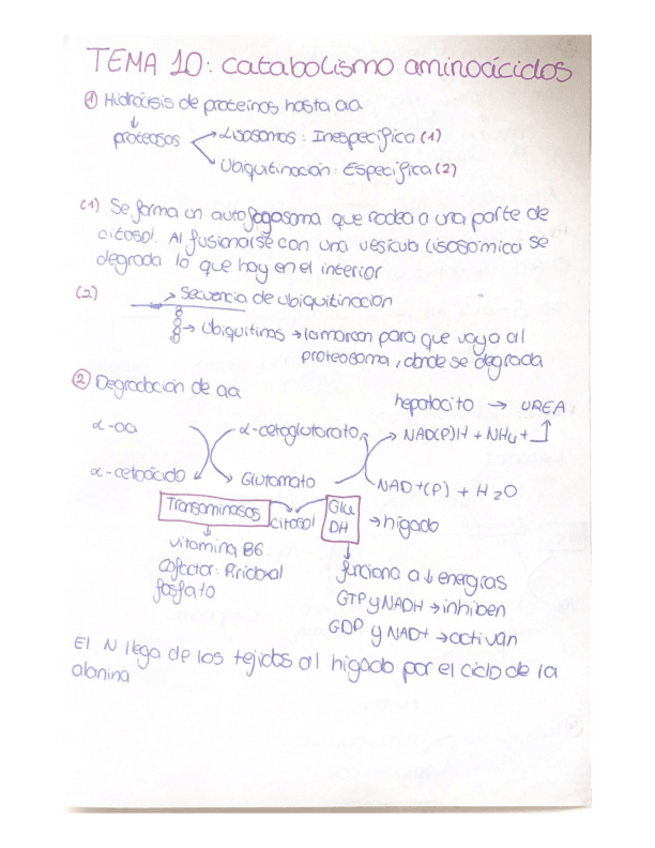 TEMA 10: catabolismo aminoácidos
① Hidrólisis de proteínas hasta aa
↓
proteasas
→ Lisosomas: Inespecífica (1)
→ Ubiquitinación: Específica (2)
(1) Se forma un autofagosoma que rodea a una parte de
citosol. Al fusionarse con una vesícula lisosómica se
degrada lo que hay en el interior
(2) → Secuencia de ubiquitinación
→ Ubiquitinas → la marcan para que vaya al
proteosoma, donde se degrada
② Degradación de aa
hepatocito → UREA
α-aa α-cetoglutarato NAD(P)H + NH4+
α-cetoácido Glutamato NAD+(P) + H2O
Transaminasas citosol Glu DH → hígado
vitamina B6
cofactor: Piridoxal
fosfato
funciona a ↓ energías
GTP y NADH → inhiben
GDP y NAD+ → activan
El N llega de los tejidos al hígado por el ciclo de la
alanina